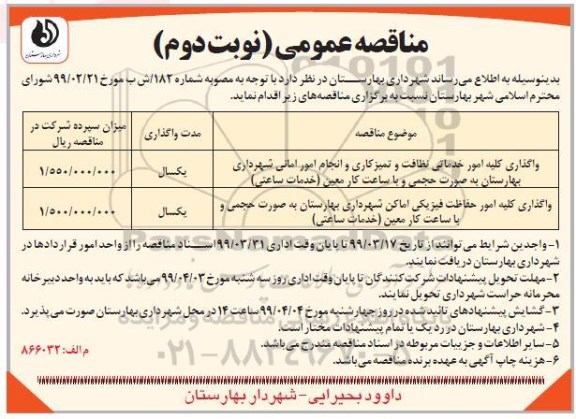 شهرداری بهارستان
مناقصه عمومی (نوبت دوم)
بدینوسیله به اطلاع می‌رساند شهرداری بهارستان در نظر دارد با توجه به مصوبه شماره ۱۸۲/ش ب مورخ ۹۹/۰۲/۲۱ شورای
محترم اسلامی شهر بهارستان نسبت به برگزاری مناقصه‌های زیر اقدام نماید.
موضوع مناقصه
مدت واگذاری
میزان سپرده شرکت در
مناقصه ریال
واگذاری کلیه امور خدماتی نظافت و تمیزکاری و انجام امور امانی شهرداری
بهارستان به صورت حجمی و با ساعت کار معین (خدمات ساعتی)
یکسال
۱/۵۵۰/۰۰۰/۰۰۰
واگذاری کلیه امور حفاظت فیزیکی اماکن شهرداری بهارستان به صورت حجمی و
با ساعت کار معین (خدمات ساعتی)
یکسال
۱/۵۰۰/۰۰۰/۰۰۰
۱- واجدین شرایط می‌توانند از تاریخ ۹۹/۰۳/۱۷ تا پایان وقت اداری ۹۹/۰۳/۳۱ اسناد مناقصه را از واحد امور قراردادها در
شهرداری بهارستان دریافت نمایند.
۲- مهلت تحویل پیشنهادات شرکت‌کنندگان تا پایان وقت اداری روز سه شنبه مورخ ۹۹/۰۴/۰۳ می‌باشد که باید به واحد دبیرخانه
محرمانه حراست شهرداری تحویل نمایند.
۳- گشایش پیشنهادهای تائید شده در روز چهارشنبه مورخ ۹۹/۰۴/۰۴ ساعت ۱۴ در محل شهرداری بهارستان صورت می‌پذیرد.
۴- شهرداری بهارستان در رد یک یا تمام پیشنهادات مختار است.
۵- سایر اطلاعات و جزییات مربوطه در اسناد مناقصه مندرج می‌باشد.
۶- هزینه چاپ آگهی به عهده برنده مناقصه می‌باشد.
م الف: ۸۶۶۰۳۲
داوود بحیرایی - شهردار بهارستان
ParsNamadData
۰۲۱-۸۸۳۴۹۶۷۰-۵